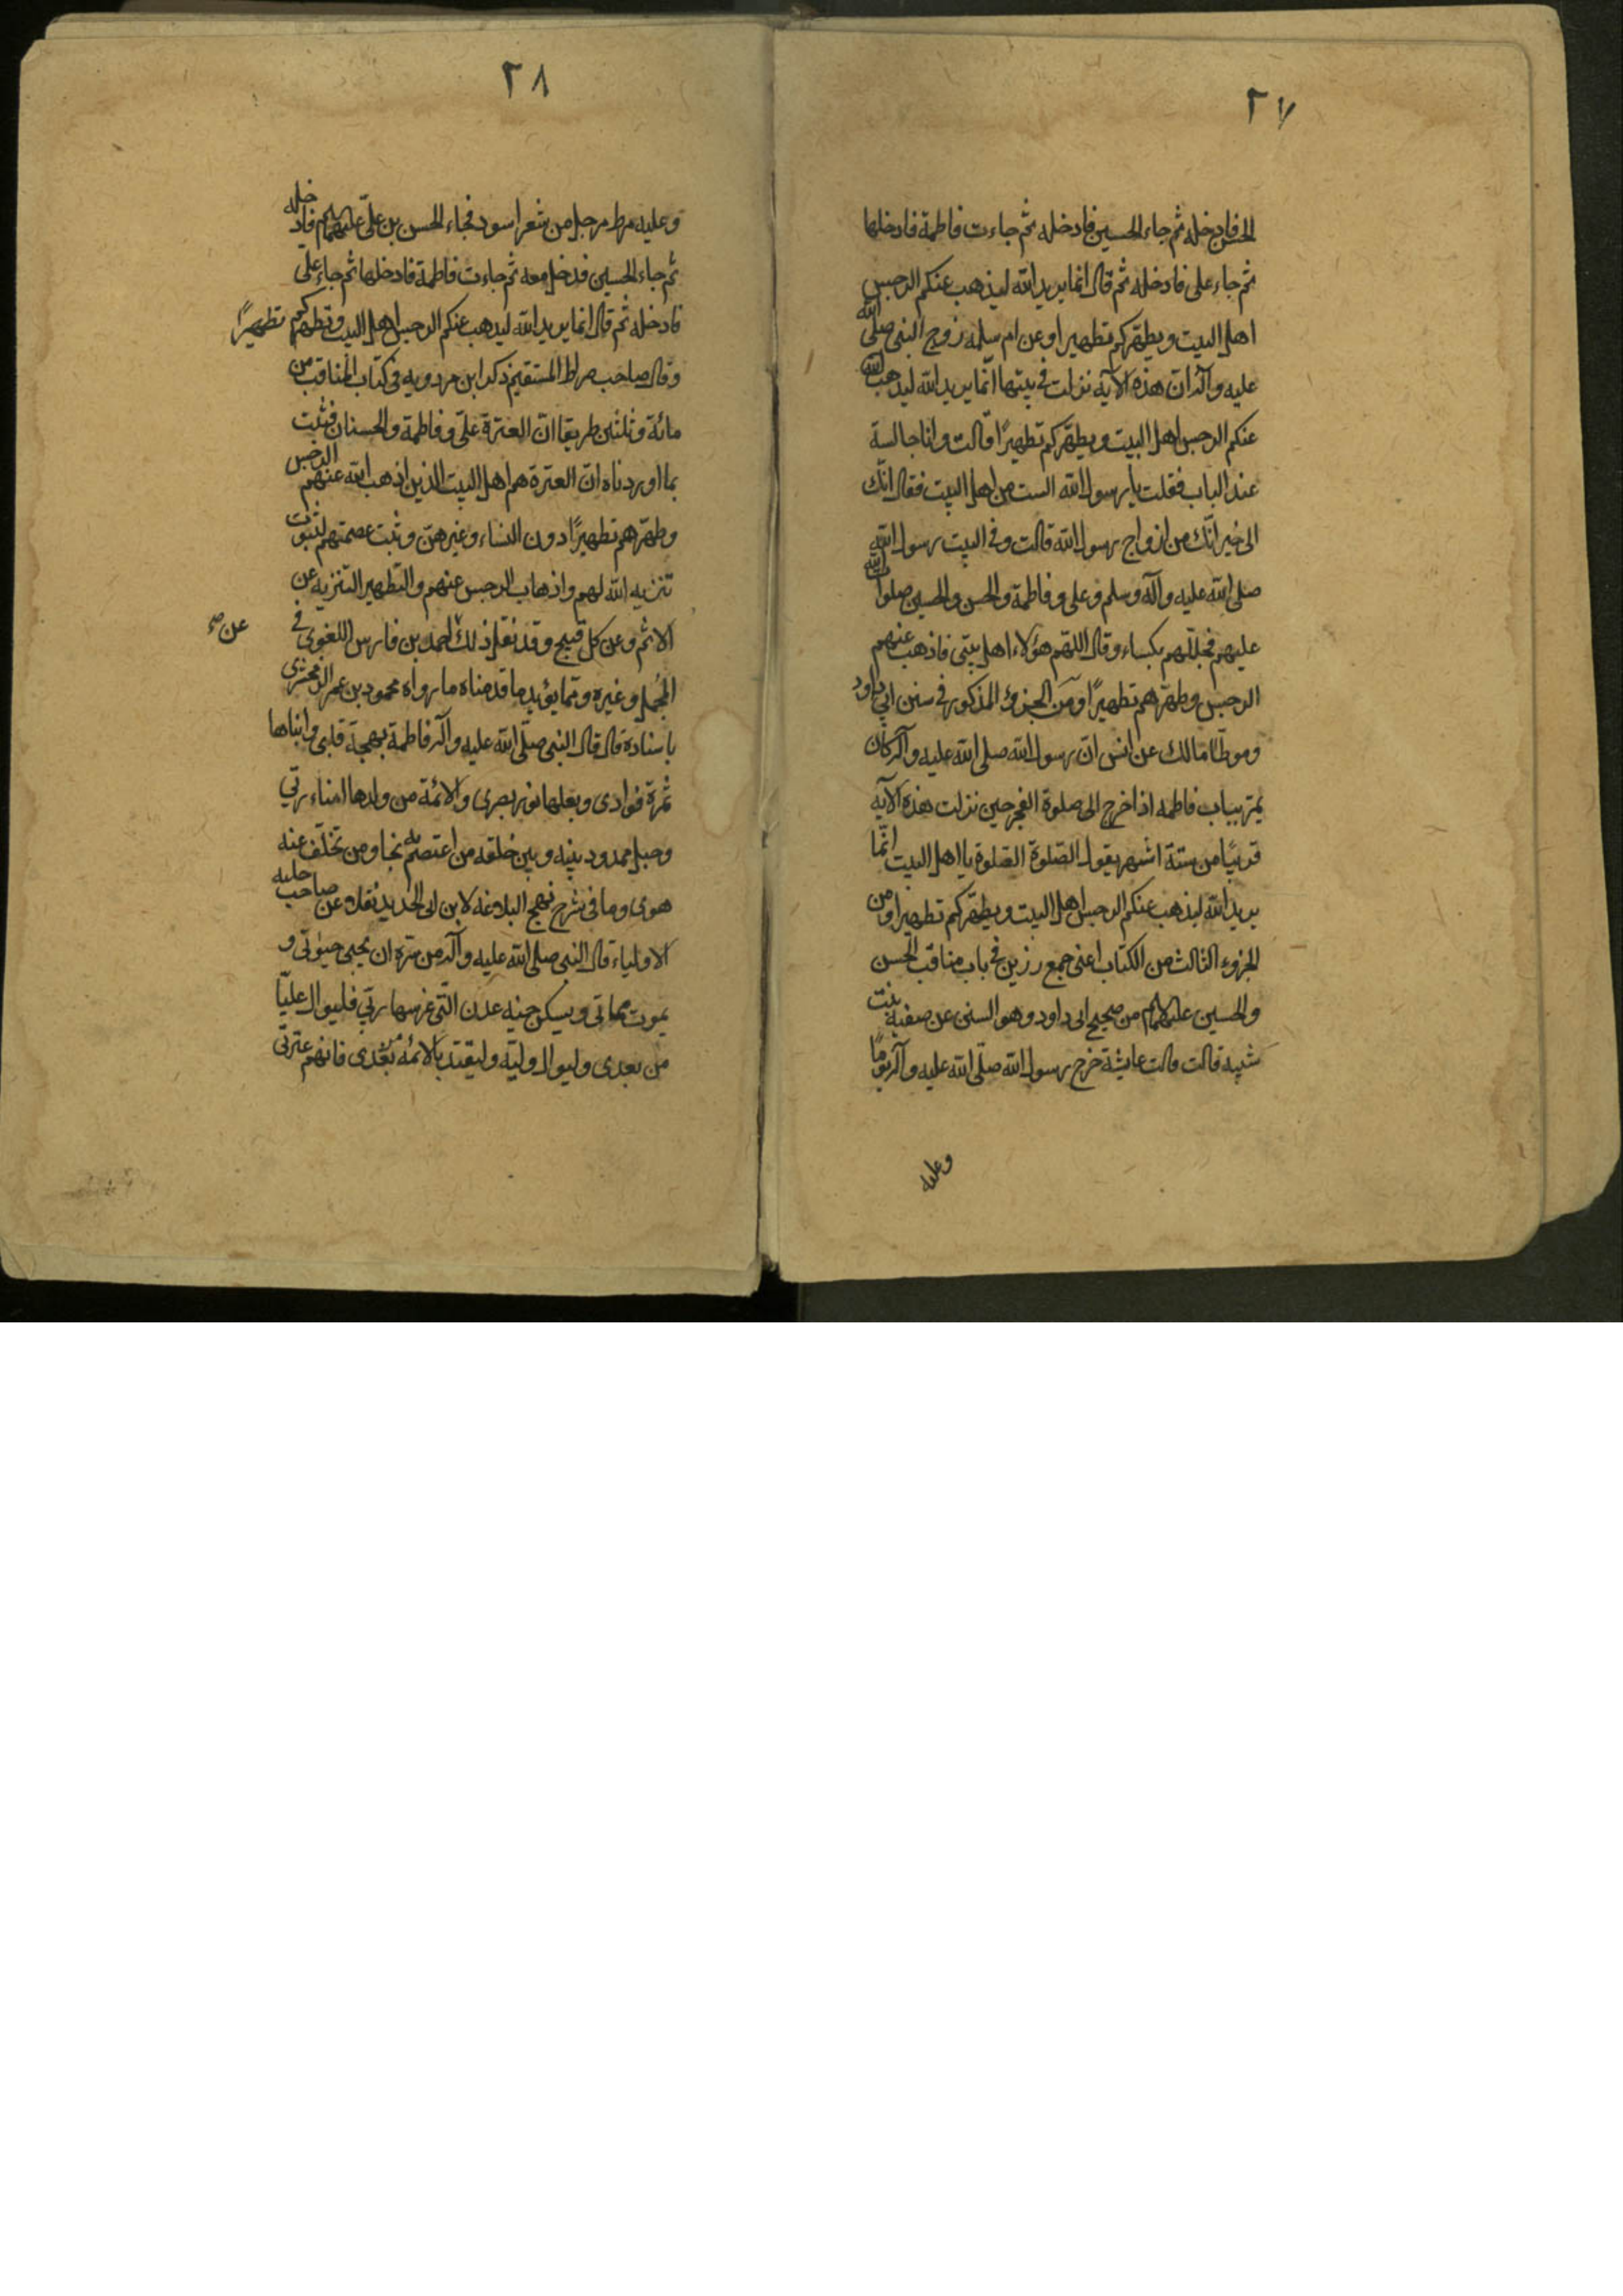 ٢٧
الحسن فادخله ثم جاء الحسين فادخله ثم جاءت فاطمة فادخلها
ثم جاء علي فادخله ثم قال انما يريد الله ليذهب عنكم الرجس
اهل البيت ويطهّركم تطهيرا وعن ام سلمه زوج النبي صلى الله
عليه وآله ان هذه الآية نزلت في بيتها انّما يريد الله ليذهب
عنكم الرجس اهل البيت ويطهّركم تطهيرًا قالت وانا جالسة
عند الباب فقلت يا رسول الله الست من اهل البيت فقال انّك
الى خير انّك من ازواج رسول الله قالت وفي البيت رسول الله
صلى الله عليه وآله وسلم وعلى وفاطمة والحسن والحسين صلوات الله
عليهم فجلّلهم بكساء وقال اللهم هؤلاء اهل بيتي فاذهب عنهم
الرجس وطهّرهم تطهيرًا ومن الجزؤ المذكور في سنن ابي داود
وموطّا مالك عن انس ان رسول الله صلى الله عليه وآله كان
يمرّ بباب فاطمه اذا خرج الى صلوة الفجر حين نزلت هذه الآية
قريبًا من ستة اشهر يقول الصّلوة الصّلوة يا اهل البيت انّما
يريد الله ليذهب عنكم الرجس اهل البيت ويطهّركم تطهيرا ومن
الجزوء الثالث من الكتاب اعنى جمع رزين في باب مناقب الحسن
والحسين عليهما السلام من صحيح ابى داود وهو السنن عن صفيه بنت
شيبه قالت قالت عايشة خرج رسول الله صلّى الله عليه وآله يومًا
وعليه
٢٨
وعليه مرط مرجل من شعر اسود فجاء الحسن بن علىّ عليهما السلام فادخله
ثم جاء الحسين فدخل معه ثم جاءت فاطمة فادخلها ثم جاء علىّ
فادخله ثم قال انما يريد الله ليذهب عنكم الرجس اهل البيت ويطهركم تطهيرًا
وقال صاحب صراط المستقيم ذكر ابن مردويه في كتاب المناقب من
مائة وثلثين طريقا انّ العترة علىّ وفاطمة والحسنان فثبت
بما اوردناه انّ العترة هم اهل البيت الذين اذهب الله عنهم الرجس
وطهّرهم تطهيرًا دون النساء وغيرهنّ وثبت عصمتهم لثبوت
تنزيه الله لهم واذهاب الرجس عنهم والتطهير التنزيه عن
الاثم وعن كل قبيح وقد نقل ذلك احمد بن فارس اللغوى في
عن
المجمل وغيره وممّا يؤيد ما قدمناه ما رواه محمود بن عمر الزمخشرى
باسناده قال قال النبى صلّى الله عليه وآله فاطمة بهجة قلبى وابناها
ثمرة فؤادى وبعلها نور بصرى والائمة من ولدها امناء ربّي
وحبل ممدود بينه وبين خلقه من اعتصم به نجا ومن تخلّف عنه
هوى وما في شرح نهج البلاغه لابن ابى الحديد نقلاه عن صاحب حليه
الاولياء قال النبى صلى الله عليه وآله من سرّه ان يحيى حيوتي و
يموت مماتي ويسكن جنه عدن الّتى غرسها ربّي فليوال عليّا
من بعدى وليوال وليّه وليقتد بالائمه من بعدى فانهم عترتي